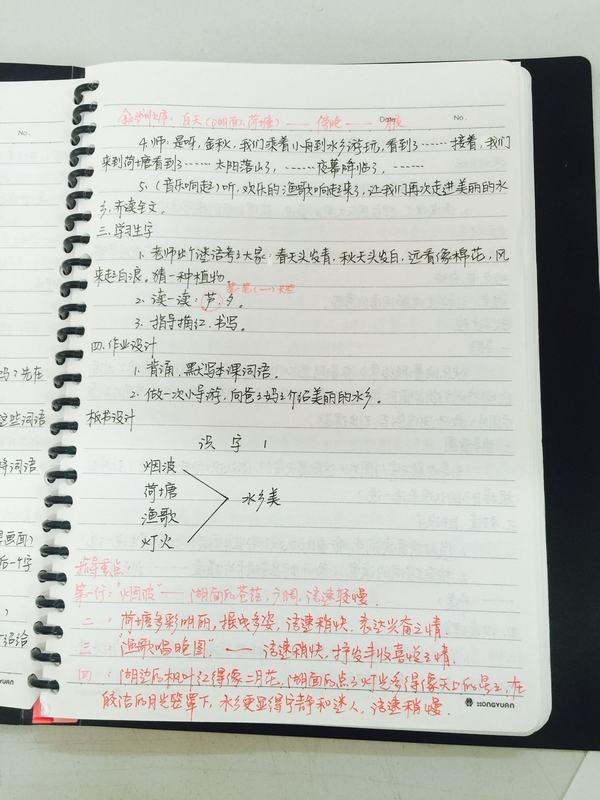 Date.
No.
白天(湖面、荷塘)——傍晚——月夜
4.师:是呀,金秋,我们乘着小舟到水乡游玩,看到了……接着,我们
来到荷塘看到了……太阳落山了,……夜幕降临了,……
5.(音乐响起)听,欢乐的渔歌响起来了,让我们再次走进美丽的水
乡.齐读全文.
三.学习生字
1.老师出个谜语考考大家:春天头发青,秋天头发白,远看像棉花,风
来起白浪。猜一种植物。
2.读一读:芦.夕。
3.指导描红.书写。
四.作业设计
1.背诵、默写本课词语。
2.做一次小导游,向爸爸妈妈介绍美丽的水乡。
板书设计
识 字 1
烟波
荷塘
渔歌
灯火
水乡美
指导重点:
第一行:"烟波"——湖面的苍茫,广阔,语速轻慢.
二:荷塘多彩明丽,摇曳多姿,语速稍快.表达兴奋之情.
三:"渔歌唱晚图"——语速稍快,抒发丰收喜悦之情.
四:湖边的枫叶红得像二月花,湖面的点点灯光多得像天上的星星,在
皎洁的月光笼罩下,水乡更显得宁静和迷人,语速稍慢.
HONGYUAN
No.
吗?先在
这些词语
将词语
后一个字